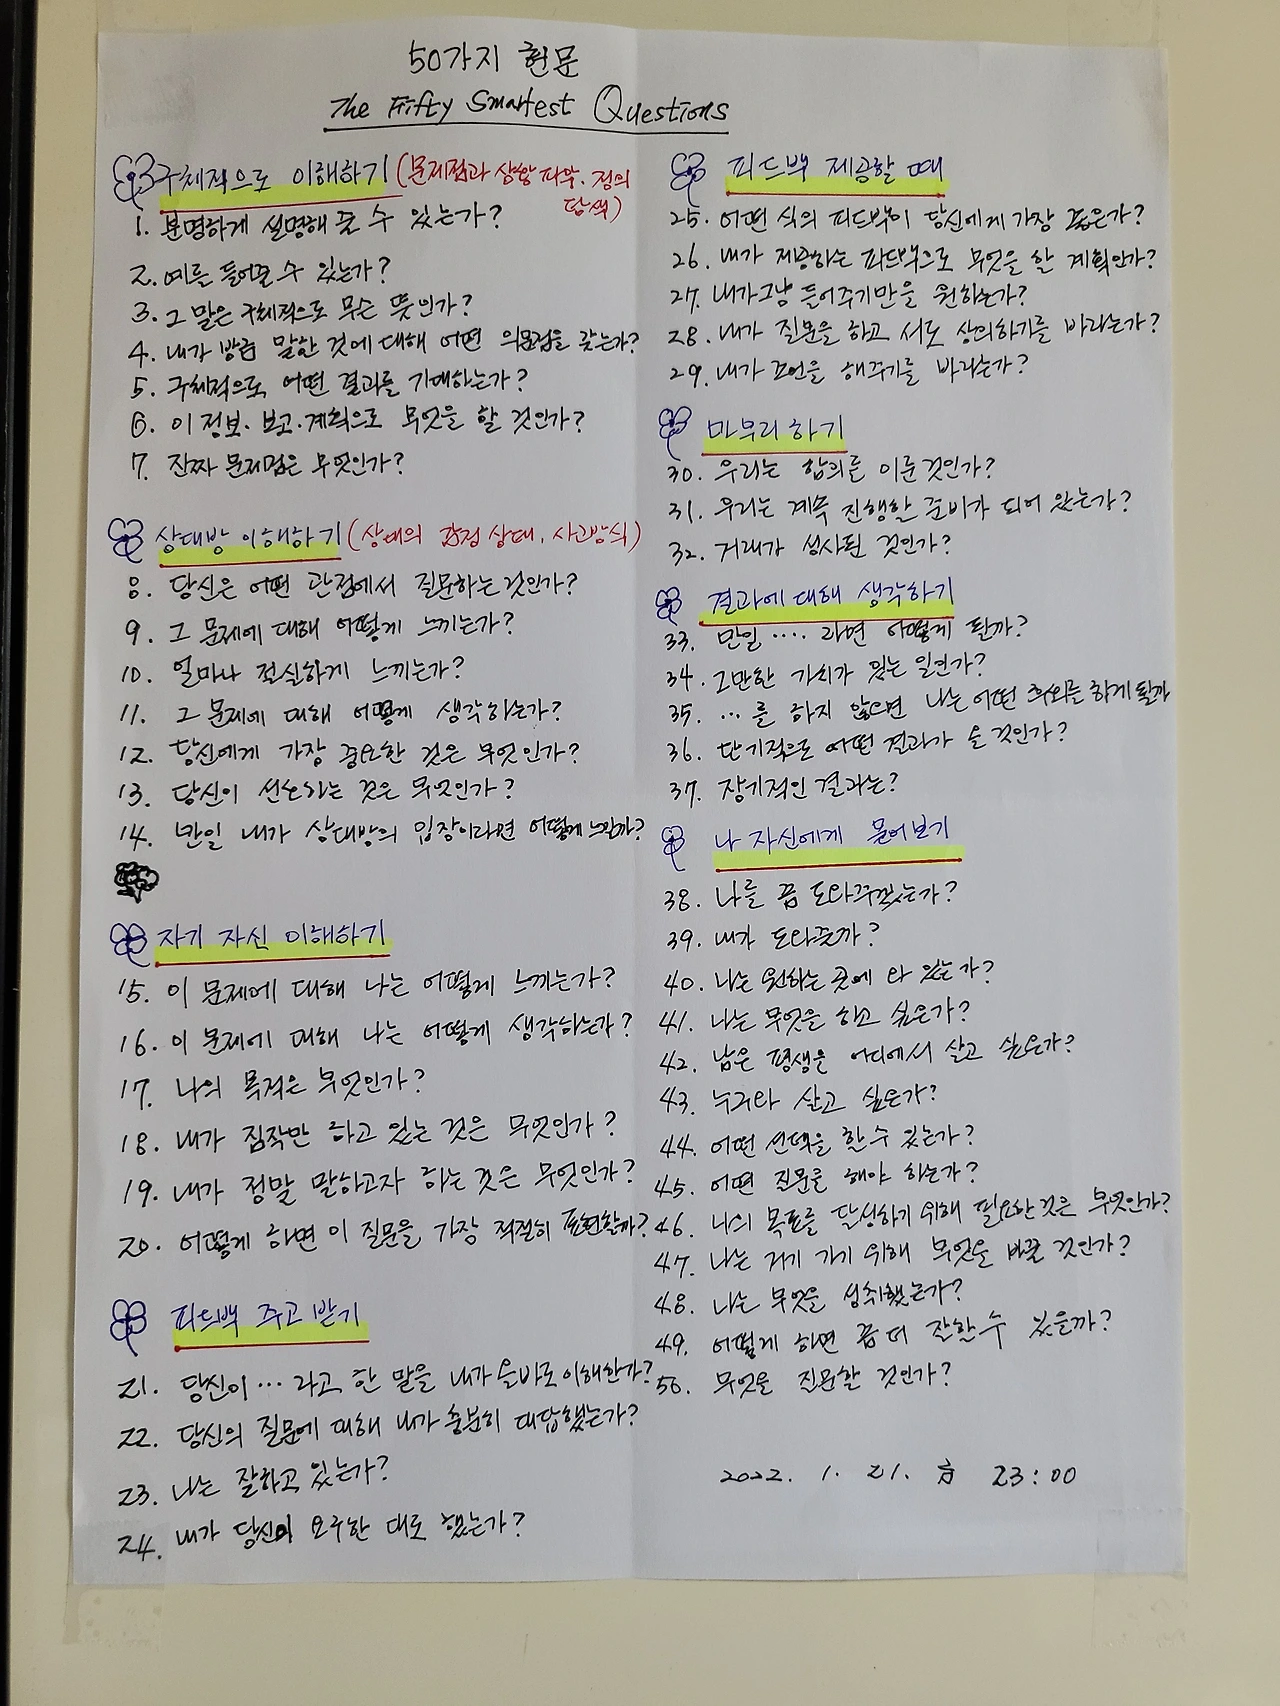 50가지 현문
The Fifty Smartest Questions
구체적으로 이해하기 (문제점과 상황 파악. 정의
탐색)
1. 분명하게 설명해 줄 수 있는가?
2. 예를 들어줄 수 있는가?
3. 그 말은 구체적으로 무슨 뜻인가?
4. 내가 방금 말한 것에 대해 어떤 의문점을 갖는가?
5. 구체적으로 어떤 결과를 기대하는가?
6. 이 정보. 보고. 계획으로 무엇을 할 것인가?
7. 진짜 문제점은 무엇인가?
상대방 이해하기 (상대의 감정 상태, 사고방식)
8. 당신은 어떤 관점에서 질문하는 것인가?
9. 그 문제에 대해 어떻게 느끼는가?
10. 얼마나 절실하게 느끼는가?
11. 그 문제에 대해 어떻게 생각하는가?
12. 당신에게 가장 중요한 것은 무엇인가?
13. 당신이 선호하는 것은 무엇인가?
14. 만일 내가 상대방의 입장이라면 어떻게 느낄까?
자기 자신 이해하기
15. 이 문제에 대해 나는 어떻게 느끼는가?
16. 이 문제에 대해 나는 어떻게 생각하는가?
17. 나의 목적은 무엇인가?
18. 내가 짐작만 하고 있는 것은 무엇인가?
19. 내가 정말 말하고자 하는 것은 무엇인가?
20. 어떻게 하면 이 질문을 가장 적절히 표현할까?
피드백 주고 받기
21. 당신이 … 라고 한 말을 내가 올바로 이해한가?
22. 당신의 질문에 대해 내가 충분히 대답했는가?
23. 나는 잘하고 있는가?
24. 내가 당신이 요구한 대로 했는가?
피드백 제공할 때
25. 어떤 식의 피드백이 당신에게 가장 좋은가?
26. 내가 제공하는 피드백으로 무엇을 할 계획인가?
27. 내가 그냥 들어주기만을 원하는가?
28. 내가 질문을 하고 서로 상의하기를 바라는가?
29. 내가 조언을 해주기를 바라는가?
마무리 하기
30. 우리는 합의를 이룬 것인가?
31. 우리는 계속 진행할 준비가 되어 있는가?
32. 거래가 성사된 것인가?
결과에 대해 생각하기
33. 만일 .... 라면 어떻게 될까?
34. 그만한 가치가 있는 일인가?
35. … 를 하지 않으면 나는 어떤 후회를 하게 될까
36. 단기적으로 어떤 결과가 올 것인가?
37. 장기적인 결과는?
나 자신에게 물어보기
38. 나를 좀 도와주겠는가?
39. 내가 도와줄까?
40. 나는 원하는 곳에 와 있는가?
41. 나는 무엇을 하고 싶은가?
42. 남은 평생을 어디에서 살고 싶은가?
43. 누구와 살고 싶은가?
44. 어떤 선택을 할 수 있는가?
45. 어떤 질문을 해야 하는가?
46. 나의 목표를 달성하기 위해 필요한 것은 무엇인가?
47. 나는 거기 가기 위해 무엇을 바꿀 것인가?
48. 나는 무엇을 성취했는가?
49. 어떻게 하면 좀 더 잘할 수 있을까?
50. 무엇을 질문할 것인가?
2022. 1. 21. 23:00